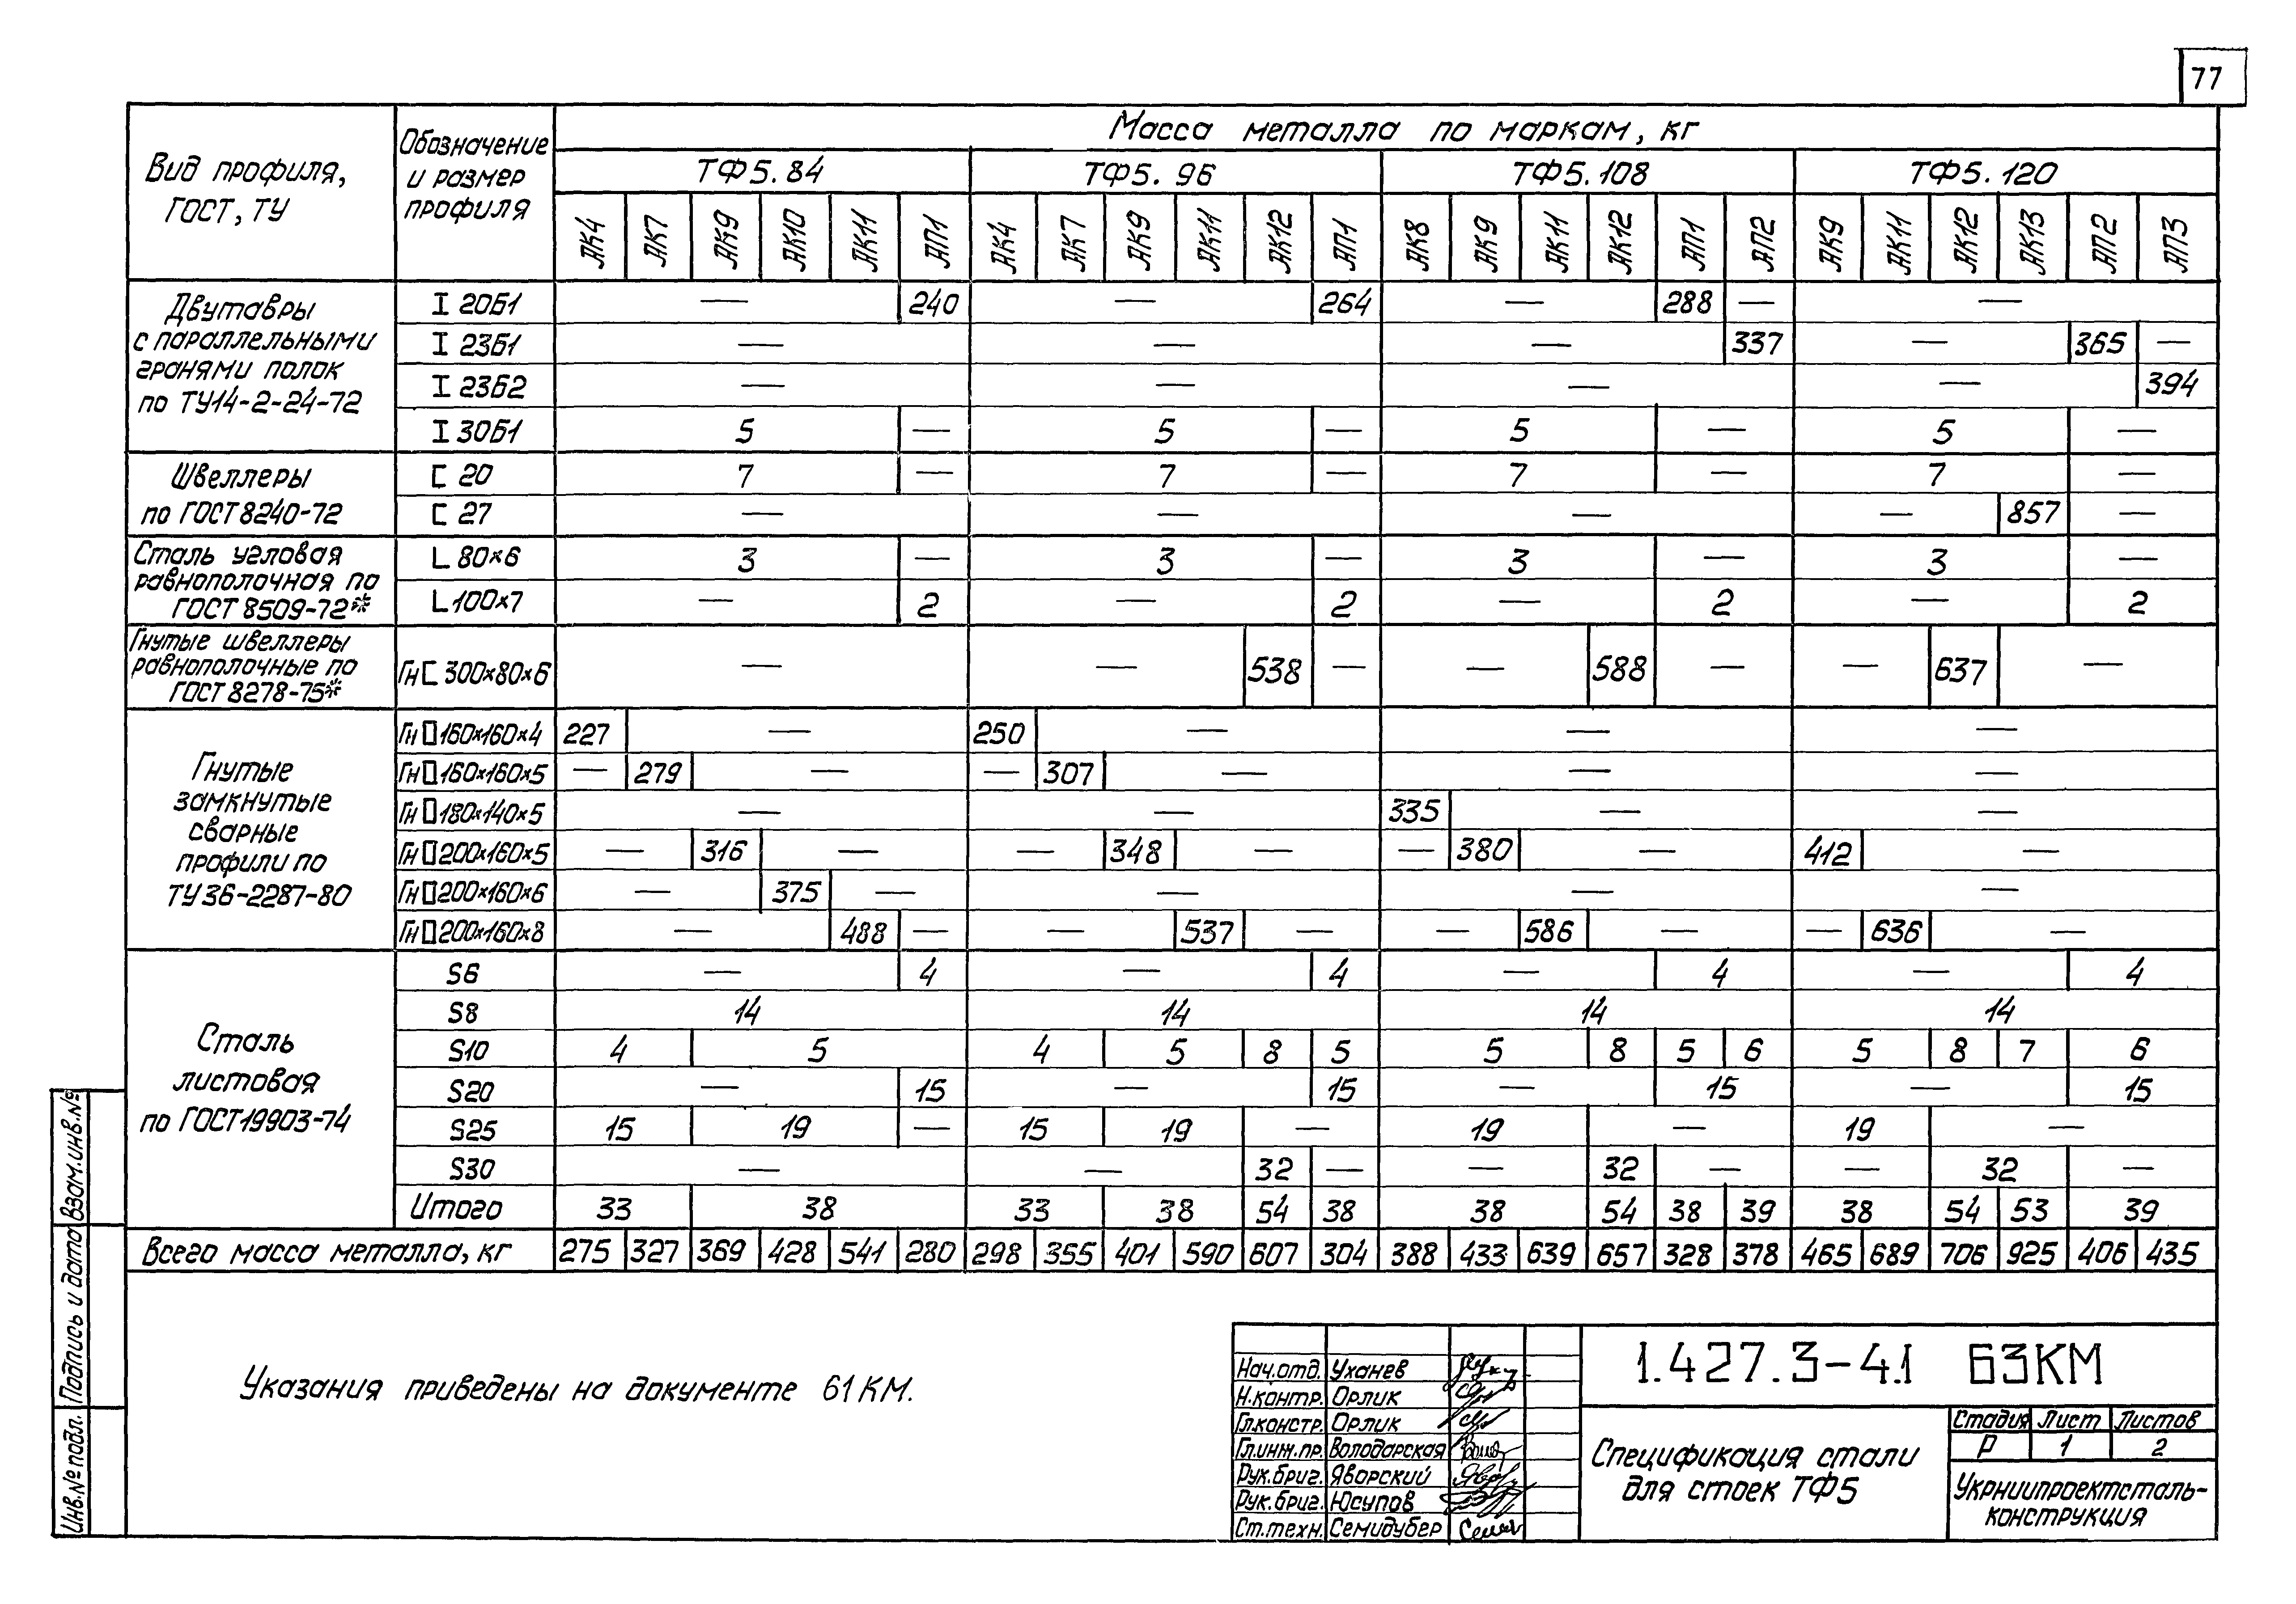 77
Вид профиля,
ГОСТ, ТУ
Обозначение
и размер
профиля
Масса металла по маркам, кг
ТФ5.84 ТФ5.96 ТФ5.108 ТФ5.120
АК4 АК7 АК9 АК10 АК11 АП1 АК4 АК7 АК9 АК11 АК12 АП1 АК8 АК9 АК11 АК12 АП1 АП2 АК9 АК11 АК12 АК13 АП2 АП3
Двутавры
с параллельными
гранями полок
по ТУ14-2-24-72
I 20Б1 — 240 — 264 — 288 — —
I 23Б1 — — — 337 — 365 —
I 23Б2 — — — — 394
I 30Б1 5 — 5 — 5 — 5 —
Швеллеры
по ГОСТ 8240-72
[ 20 7 — 7 — 7 — 7 —
[ 27 — — — — 857 —
Сталь угловая
равнополочная по
ГОСТ 8509-72*
L 80×6 3 — 3 — 3 — 3 —
L 100×7 — 2 — 2 — 2 — 2
Гнутые швеллеры
равнополочные по
ГОСТ 8278-75*
Гн [ 300×80×6 — — 538 — — 588 — — 637 —
Гнутые
замкнутые
сварные
профили по
ТУ 36-2287-80
Гн □ 160×160×4 227 — 250 — — —
Гн □ 160×160×5 — 279 — — 307 — — —
Гн □ 180×140×5 — — 335 — —
Гн □ 200×160×5 — 316 — — 348 — — 380 — 412 —
Гн □ 200×160×6 — 375 — — — —
Гн □ 200×160×8 — 488 — — 537 — — 586 — — 636 —
Сталь
листовая
по ГОСТ 19903-74
S6 — 4 — 4 — 4 — 4
S8 14 14 14 14
S10 4 5 4 5 8 5 5 8 5 6 5 8 7 6
S20 — 15 — 15 — 15 — 15
S25 15 19 — 15 19 — 19 — 19 —
S30 — — 32 — — 32 — — 32 —
Итого 33 38 33 38 54 38 38 54 38 39 38 54 53 39
Всего масса металла, кг 275 327 369 428 541 280 298 355 401 590 607 304 388 433 639 657 328 378 465 689 706 925 406 435
Указания приведены на документе 61КМ.
Взам.инв.№
Подпись и дата
Инв.№ подл.
Нач.отд. Уханев
Н.контр. Орлик
Гл.констр. Орлик
Гл.инж.пр. Володарская
Рук.бриг. Яворский
Рук.бриг. Юсупов
Ст.техн. Семидубер
1.427.3-4.1 63КМ
Спецификация стали
для стоек ТФ5
Стадия Лист Листов
Р 1 2
Укрниипроектсталь-
конструкция